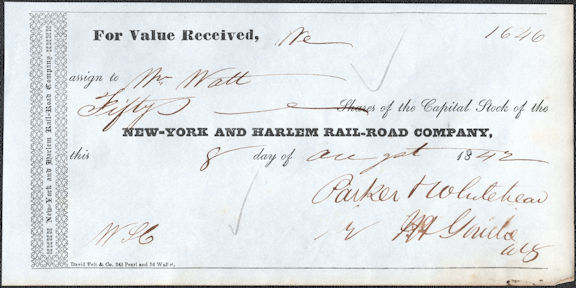 For Value Received, We 1646
assign to Wm Watt
Fifty Shares of the Capital Stock of the
NEW-YORK AND HARLEM RAIL-ROAD COMPANY,
this 8 day of August 1842
Parker & Whitehead
W
New-York and Harlem Rail-Road Company.
David Felt & Co. 245 Pearl and 34 Wall st.